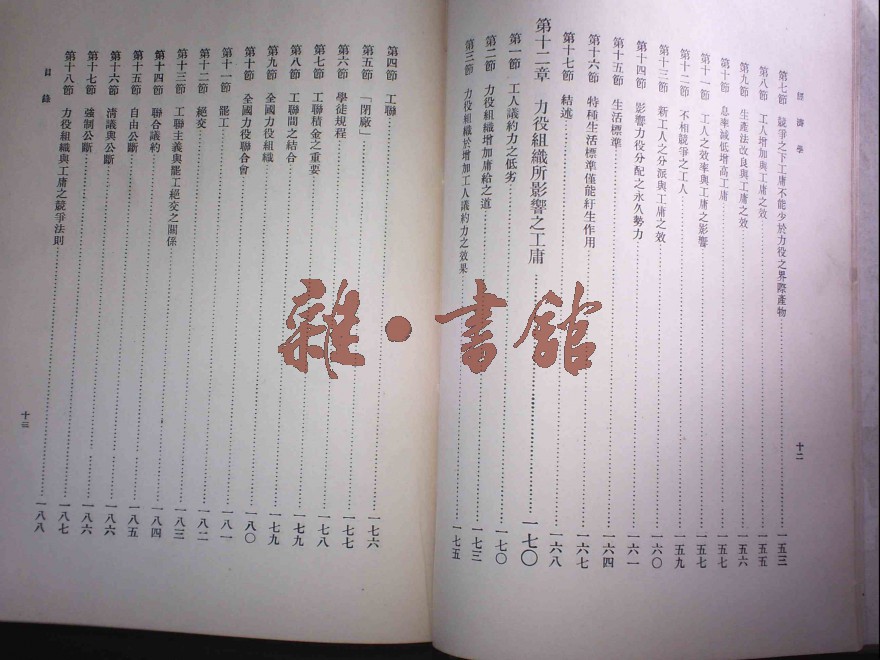 經濟學
第七節 競爭之下工庸不能少於力役之界際產物……一五三
第八節 工人增加與工庸之效……一五五
第九節 生產法改良與工庸之效……一五六
第十節 息率減低增高工庸……一五七
第十一節 工人之效率與工庸之影響……一五七
第十二節 不相競爭之工人……一五九
第十三節 新工人之分派與工庸之效……一六〇
第十四節 影響力役分配之永久勢力……一六一
第十五節 生活標準……一六四
第十六節 特種生活標準僅能紆生作用……一六七
第十七節 結述……一六八
第十二章 力役組織所影響之工庸……一七〇
第一節 工人議約力之低劣……一七〇
第二節 力役組織增加庸給之道……一七三
第三節 力役組織於增加工人議約力之效果……一七五
十二
第四節 工聯……一七六
第五節 「閉廠」……一七七
第六節 學徒規程……一七八
第七節 工聯積金之重要……一七九
第八節 工聯間之結合……一七九
第九節 全國力役組織……一八〇
第十節 全國力役聯合會……一八一
第十一節 罷工……一八二
第十二節 絕交……一八三
第十三節 工聯主義與罷工絕交之關係……一八四
第十四節 聯合議約……一八五
第十五節 自由公斷……一八六
第十六節 清議與公斷……一八六
第十七節 強制公斷……一八七
第十八節 力役組織與工庸之競爭法則……一八八
目錄
十三
雜·書館